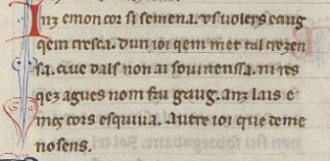 Inz e mon cor si semena. us uoleys e aug
qem cresca. dun ioi qem met tal crezen
sa. cue dals non ai souinenssa. ni res
qez agues nom feu gaug. anz lais e
mos cors esquiua. autre ioi que deme
no sens.